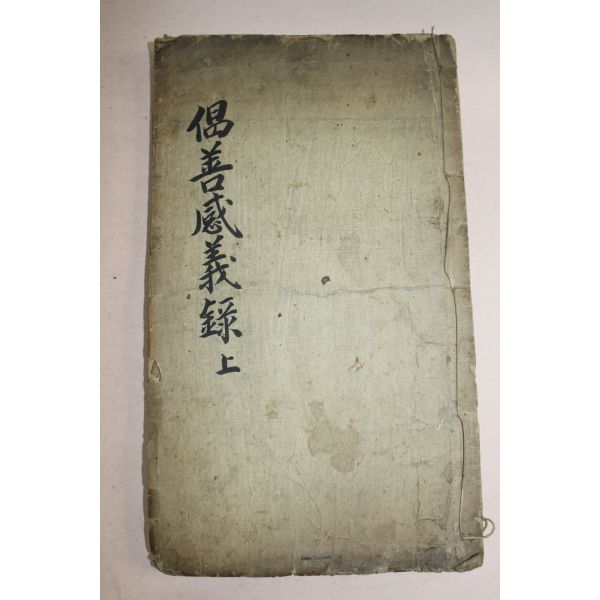 倡善感義錄上